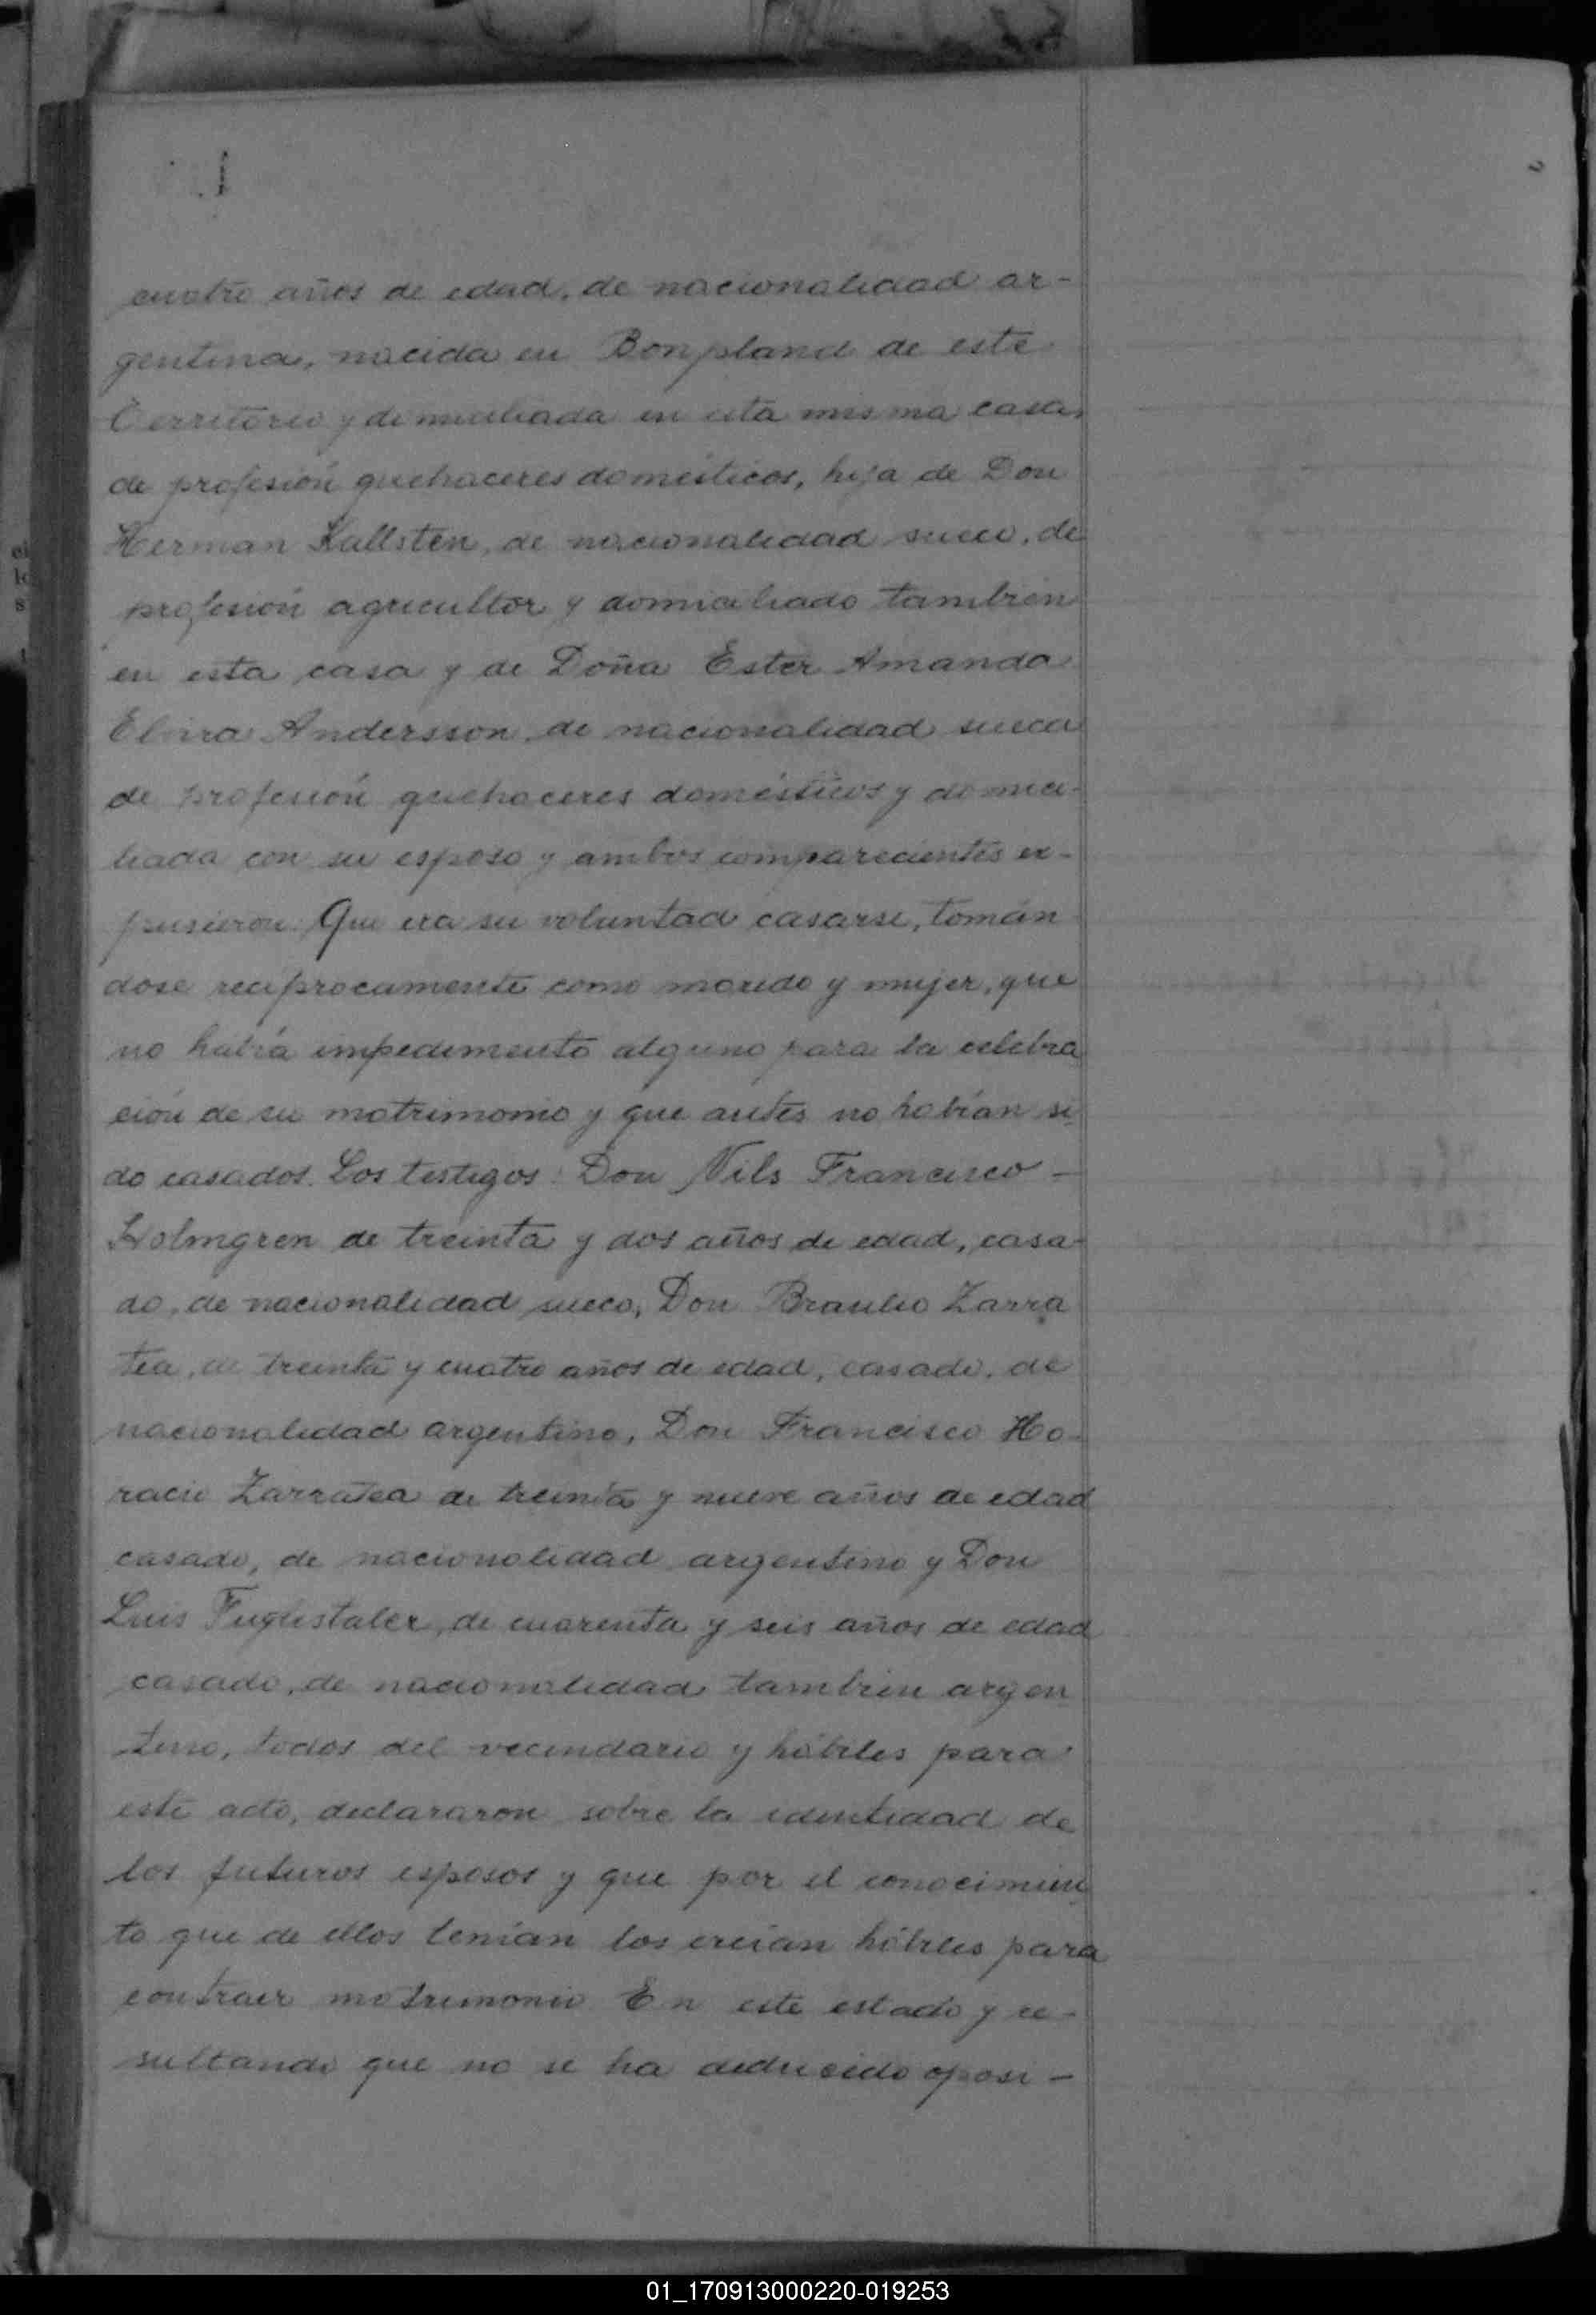 cuatro años de edad, de nacionalidad ar-
gentina, nacida en Bonpland de este
Territorio y domiciliada en esta misma casa,
de profesión quehaceres domésticos, hija de Don
Herman Kallsten, de nacionalidad sueco, de
profesión agricultor y domiciliado también
en esta casa y de Doña Ester Amanda
Elvira Andersson, de nacionalidad sueca
de profesión quehaceres domésticos y domici-
liada con su esposo y ambos comparecientes ex-
pusieron: Que era su voluntad casarse, tomán
dose recíprocamente como marido y mujer, que
no había impedimento alguno para la celebra
ción de su matrimonio y que antes no habían si
do casados. Los testigos: Don Nils Francisco -
Holmgren de treinta y dos años de edad, casa-
do, de nacionalidad sueco, Don Braulio Zarra
tea, de treinta y cuatro años de edad, casado, de
nacionalidad argentino, Don Francisco Ho-
racio Zarratea de treinta y nueve años de edad
casado, de nacionalidad argentino y Don
Luis Fuglistaler, de cuarenta y seis años de edad
casado, de nacionalidad tambien argen
tino, todos del vecindario y hábiles para
este acto, declararon sobre la identidad de
los futuros esposos y que por el conocimien
to que de ellos tenían los creían hábiles para
contraer matrimonio En este estado y re-
sultando que no se ha deducido oposi-
01_170913000220-019253